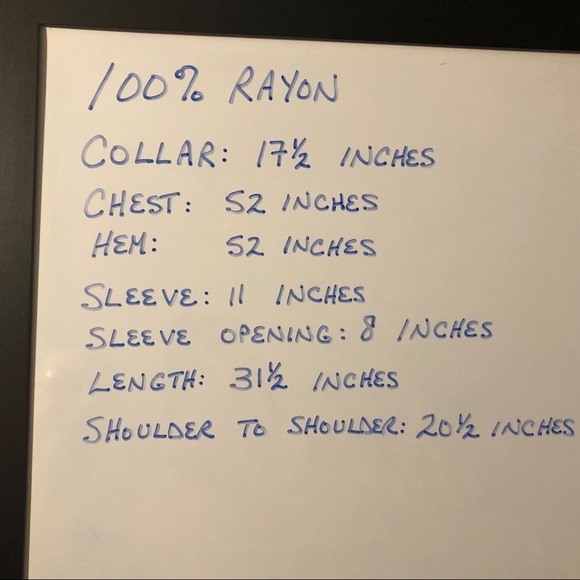 100% RAYON
COLLAR: 17½ INCHES
CHEST: 52 INCHES
HEM: 52 INCHES
SLEEVE: 11 INCHES
SLEEVE OPENING: 8 INCHES
LENGTH: 31½ INCHES
SHOULDER TO SHOULDER: 20½ INCHES